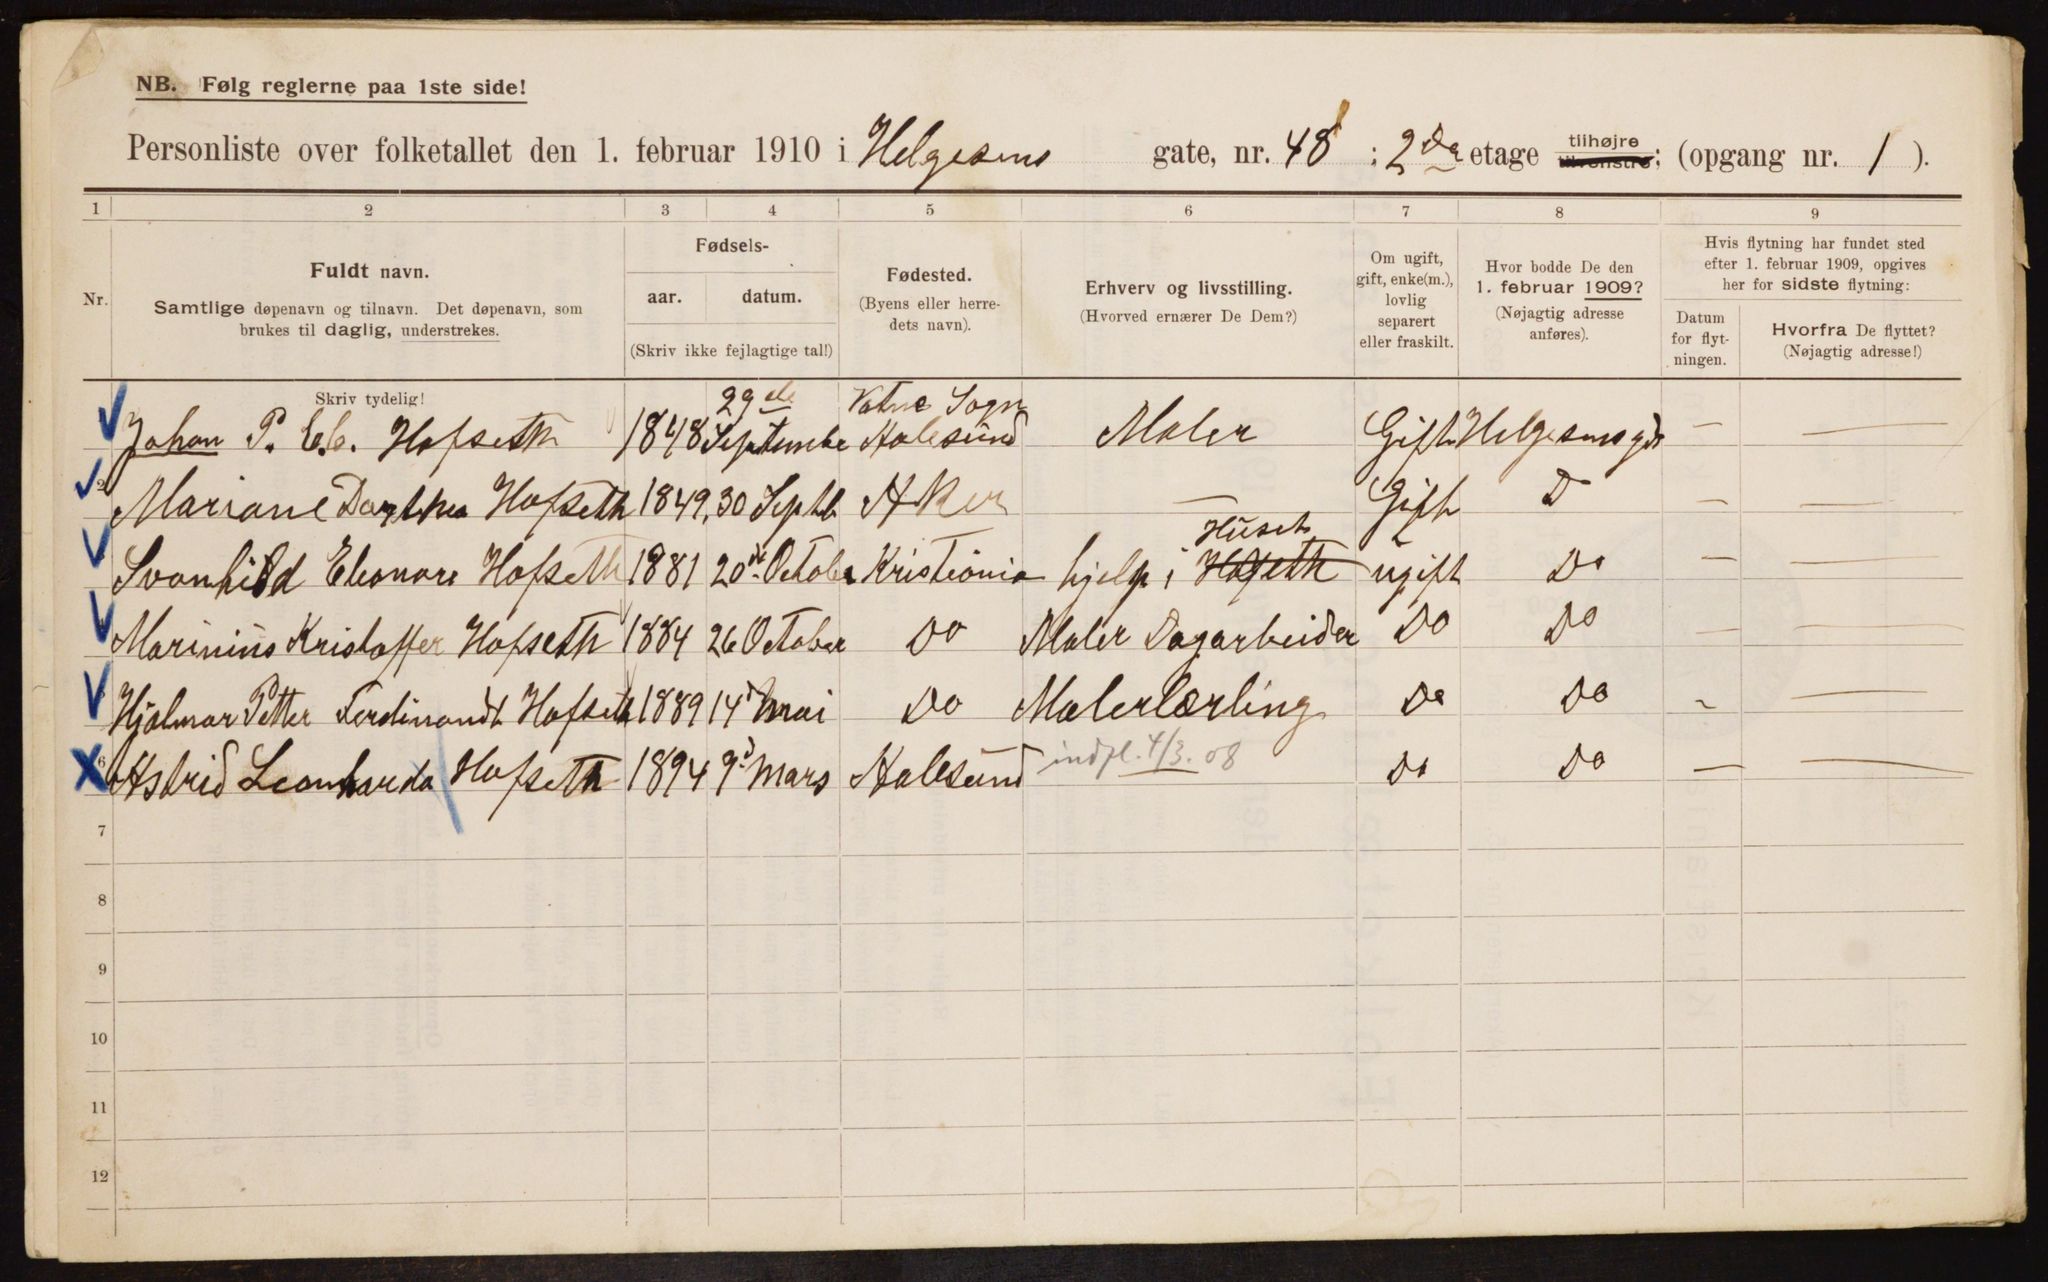 NB. Følg reglerne paa 1ste side!
Personliste over folketallet den 1. februar 1910 i Helgesens gate, nr. 48 ; 2den etage tilhøjre tilvenstre; (opgang nr. 1 ).
1 2 3 4 5 6 7 8 9
Nr.
Fuldt navn.
Samtlige døpenavn og tilnavn. Det døpenavn, som
brukes til daglig, understrekes.
Fødsels-
aar. datum.
(Skriv ikke fejlagtige tal!)
Fødested.
(Byens eller herre-
dets navn).
Erhverv og livsstilling.
(Hvorved ernærer De Dem?)
Om ugift,
gift, enke(m.),
lovlig
separert
eller fraskilt.
Hvor bodde De den
1. februar 1909?
(Nøjagtig adresse
anføres).
Hvis flytning har fundet sted
efter 1. februar 1909, opgives
her for sidste flytning:
Datum
for flyt-
ningen.
Hvorfra De flyttet?
(Nøjagtig adresse!)
Skriv tydelig!
29de Vatne Sogn
Johan P. E.b. Hofseth 1848 Septembe Aalesund Maler Gift Helgesensgd — —
2 Mariane Dorthea Hofseth 1849 30 Septb Aker — Gift D — —
Huset
Svanhild Eleonore Hofseth 1881 20de October Kristiania hjelp i Hofseth ugift Do — —
Marinius Kristoffer Hofseth 1884 26 October Do Maler Dagarbeider Do Do — —
Hjalmar Petter Ferdinandt Hofseth 1889 14d Mai Do Malerlærling Do Do — —
6 Astrid Leonharda Hofseth 1894 9d Mars Aalesund indfl. 4/3.08 Do Do — —
7
8
9
10
11
12